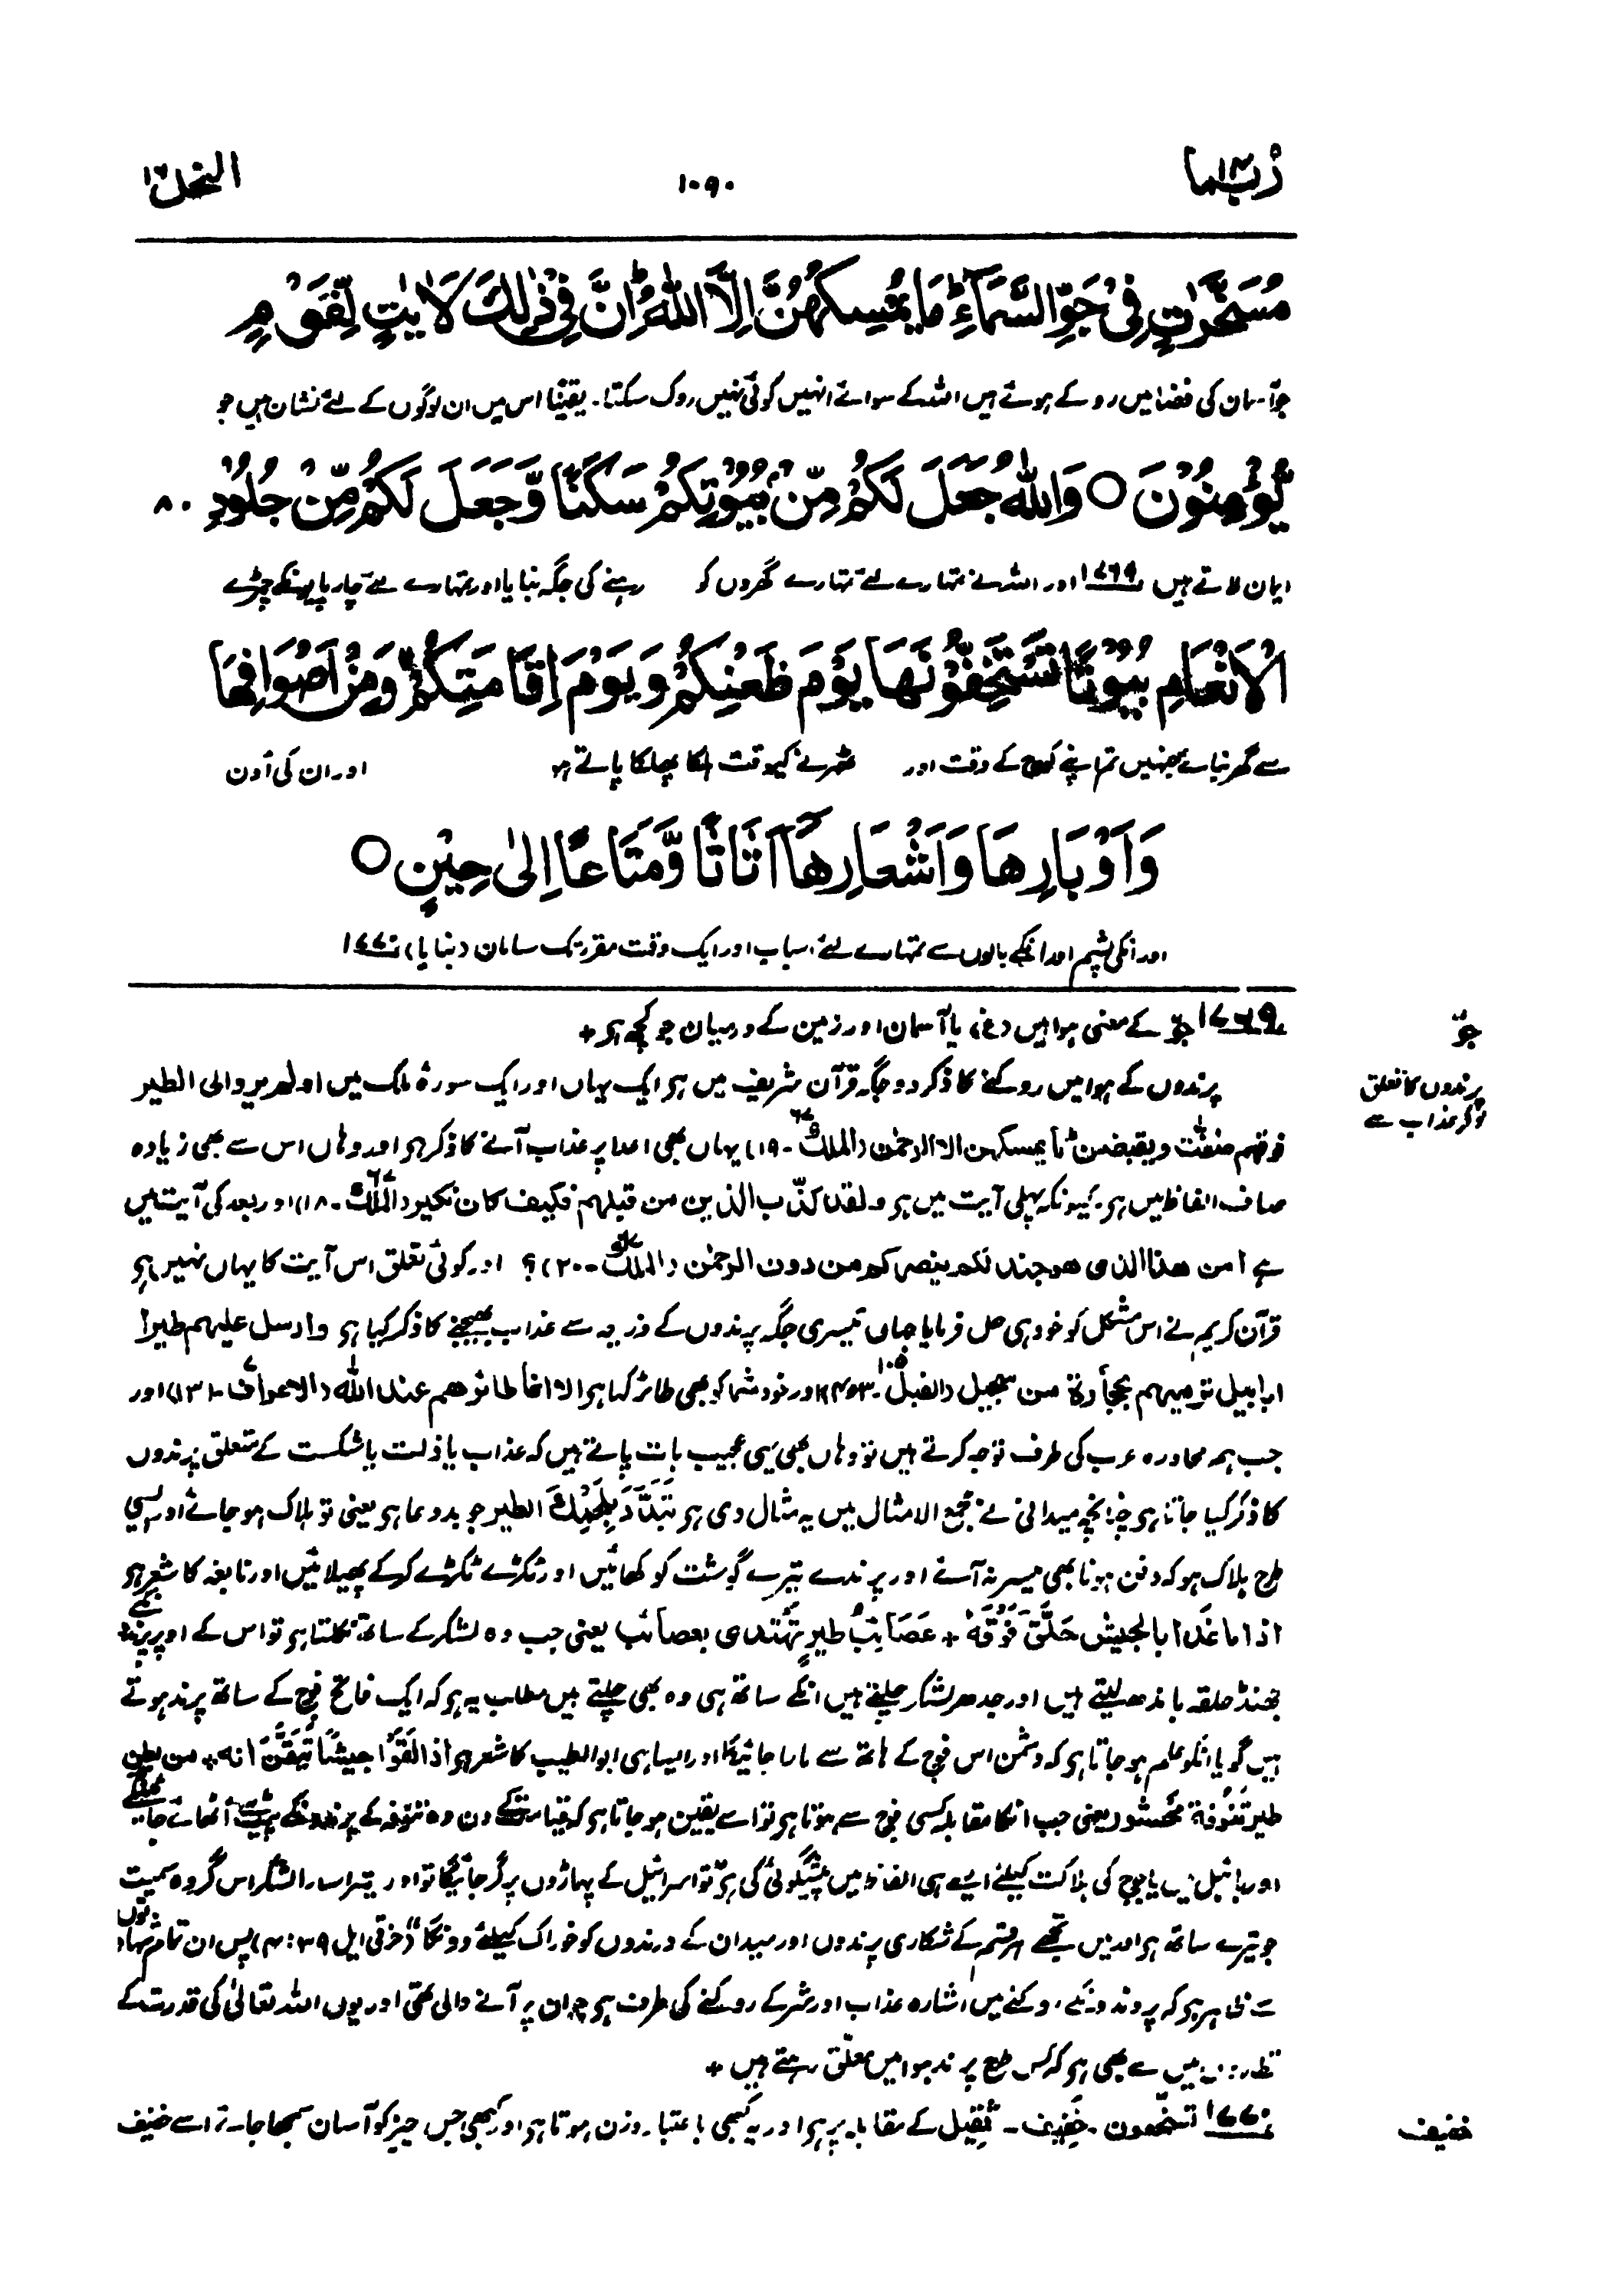 ربما ۱۴
۱۰۹۰
النحل ۱۶
مُسَخَّرٰتٍ فِیْ جَوِّ السَّمَآءِؕ مَا یُمْسِكُهُنَّ اِلَّا اللّٰهُؕ اِنَّ فِیْ ذٰلِكَ لَاٰیٰتٍ لِّقَوْمٍ
جو آسمان کی فضا میں روکے ہوئے ہیں اللہ کے سوائے انہیں کوئی نہیں روک سکتا۔ یقینًا اس میں ان لوگوں کے لئے نشان ہیں جو
یُّؤْمِنُوْنَ ○ وَاللّٰهُ جَعَلَ لَكُمْ مِّنْۢ بُیُوْتِكُمْ سَكَنًا وَّجَعَلَ لَكُمْ مِّنْ جُلُوْدِ ۸۰
ایمان لاتے ہیں ۱۷۶۹ اور اللہ نے تمہارے لئے تمہارے گھروں کو رہنے کی جگہ بنایا اور تمہارے لئے چارپایونکے چمڑے
الْاَنْعَامِ بُیُوْتًا تَسْتَخِفُّوْنَهَا یَوْمَ ظَعْنِكُمْ وَیَوْمَ اِقَامَتِكُمْۙ وَمِنْ اَصْوَافِهَا
سے گھر بنائے جنہیں تم اپنے کوچ کے وقت اور ٹھہرنے کیوقت ہلکا پھلکا پاتے ہو اور ان کی اُون
وَاَوْبَارِهَا وَاَشْعَارِهَاۤ اَثَاثًا وَّمَتَاعًا اِلٰی حِیْنٍ ○
اور انکی پشم اور انکے بالوں سے تمہارے لئے اسباب اور ایک وقت مقرر تک سامان (بنایا) ۱۷۷۰
۱۷۶۹ جوّ کے معنی ہوا ہیں (غ) یا آسمان اور زمین کے درمیان جو کچھ ہو +
جوّ
پرندوں کے ہوا میں روکنے کا ذکر دو جگہ قرآن شریف میں ہو ایک یہاں اور ایک سورۂ ملک میں اولم یروا الی الطیر
پرندوں کا تعلق
ذکر عذاب سے
فوقهم صٰفّٰت ویقبضن ما یمسکهن الا الرحمٰن (الملک ۶۷ ۔ ۱۹) یہاں بھی اعدا پر عذاب آنے کا ذکر ہو اور وہاں اس سے بھی زیادہ
صاف الفاظ میں ہو۔ کیونکہ پہلی آیت میں ہو ولقد کذّب الذین من قبلهم فکیف کان نکیر (الملک ۶۷ ۔ ۱۸) اور بعد کی آیت میں
ہے امن هذا الذی هو جند لکم ینصرکم من دون الرحمٰن (الملک ۶۷ ۔ ۲۰)؟ اور کوئی تعلق اس آیت کا یہاں نہیں ہو
قرآن کریم نے اس مشکل کو خود ہی حل فرمایا جہاں تیسری جگہ پرندوں کے ذریعہ سے عذاب بھیجنے کا ذکر کیا ہو وارسل علیهم طیرا
ابابیل ترمیهم بحجارة من سجیل (الفیل ۱۰۵ ۔ ۳و۴) اور خود کو بھی طائر کہا ہو الا انما طائرهم عند الله (الاعراف ۷ ۔ ۱۳۱) اور
جب ہم محاورہ عرب کی طرف توجہ کرتے ہیں تو وہاں بھی یہی عجیب بات پاتے ہیں کہ عذاب یا ذلت یا شکست کے متعلق پرندوں
کا ذکر کیا جاتا ہو چنانچہ میدانی نے مجمع الامثال میں یہ مثال دی ہو تَبَدَّدَ بِلَحْمِكَ الطیر جو بددعا ہو یعنی تو ہلاک ہو جائے اور ایسی
طرح ہلاک ہو کہ دفن ہونا بھی میسر نہ آئے اور پرندے تیرے گوشت کو کھائیں اور ٹکڑے ٹکڑے کرکے پھیلائیں اور نابغہ کا شعر ہو
اذا ما غدا بالجیش حَلَّقَ فَوْقَهٗ + عَصَائِبُ طیرٍ تَهْتَدی بعصائب یعنی جب وہ لشکر کے ساتھ نکلتا ہو تو اس کے اوپر پرندوں کے
جھنڈ حلقہ باندھ لیتے ہیں اور جدھر لشکر چلتے ہیں انکے ساتھ ہی وہ بھی چلتے ہیں مطلب یہ ہو کہ ایک فاتح فوج کے ساتھ پرند ہوتے
ہیں گویا انکو علم ہو جاتا ہو کہ دشمن اس فوج کے ہاتھ سے مارا جائیگا اور ایسا ہی ابو الطیب کا شعر ہو اذا لَقَوْا جیشًا تَیَقَّنَ انه + من بطن
طیر تَنُوفة محشور یعنی جب انکا مقابلہ کسی فوج سے ہوتا ہو تو اسے یقین ہو جاتا ہو کہ قیامت کے دن وہ تنوفہ کے پرندونکے پیٹ سے اٹھائے جائینگے
اور بائبل میں یاجوج کی ہلاکت کیلئے ایسے ہی الفاظ میں پیشگوئی کی ہو ''تو اسرائیل کے پہاڑوں پر گر جائیگا تو اور تیرا سارا لشکر اس گروہ سمیت
جو تیرے ساتھ ہو اور میں تجھے ہر قسم کے شکاری پرندوں اور میدان کے درندوں کو خوراک کیلئے دونگا'' (حزقی ایل ۳۹: ۴) پس ان تمام شہادتوں
سے ظاہر ہو کہ پرندوں کے روکنے میں اشارہ عذاب اور شر کے روکنے کی طرف ہو جو ان پر آنے والی تھی اور یوں اللہ تعالیٰ کی قدرت کے
نظاروں میں سے بھی ہو کہ کس طرح پرند ہوا میں معلّق رہتے ہیں +
۱۷۷۰ تستخفون۔ خَفِیف۔ ثَقِیل کے مقابلہ پر ہو اور یہ کبھی باعتبار وزن ہوتا ہو اور کبھی جس چیز کو آسان سمجھا جائے اسے خفیف
خفیف